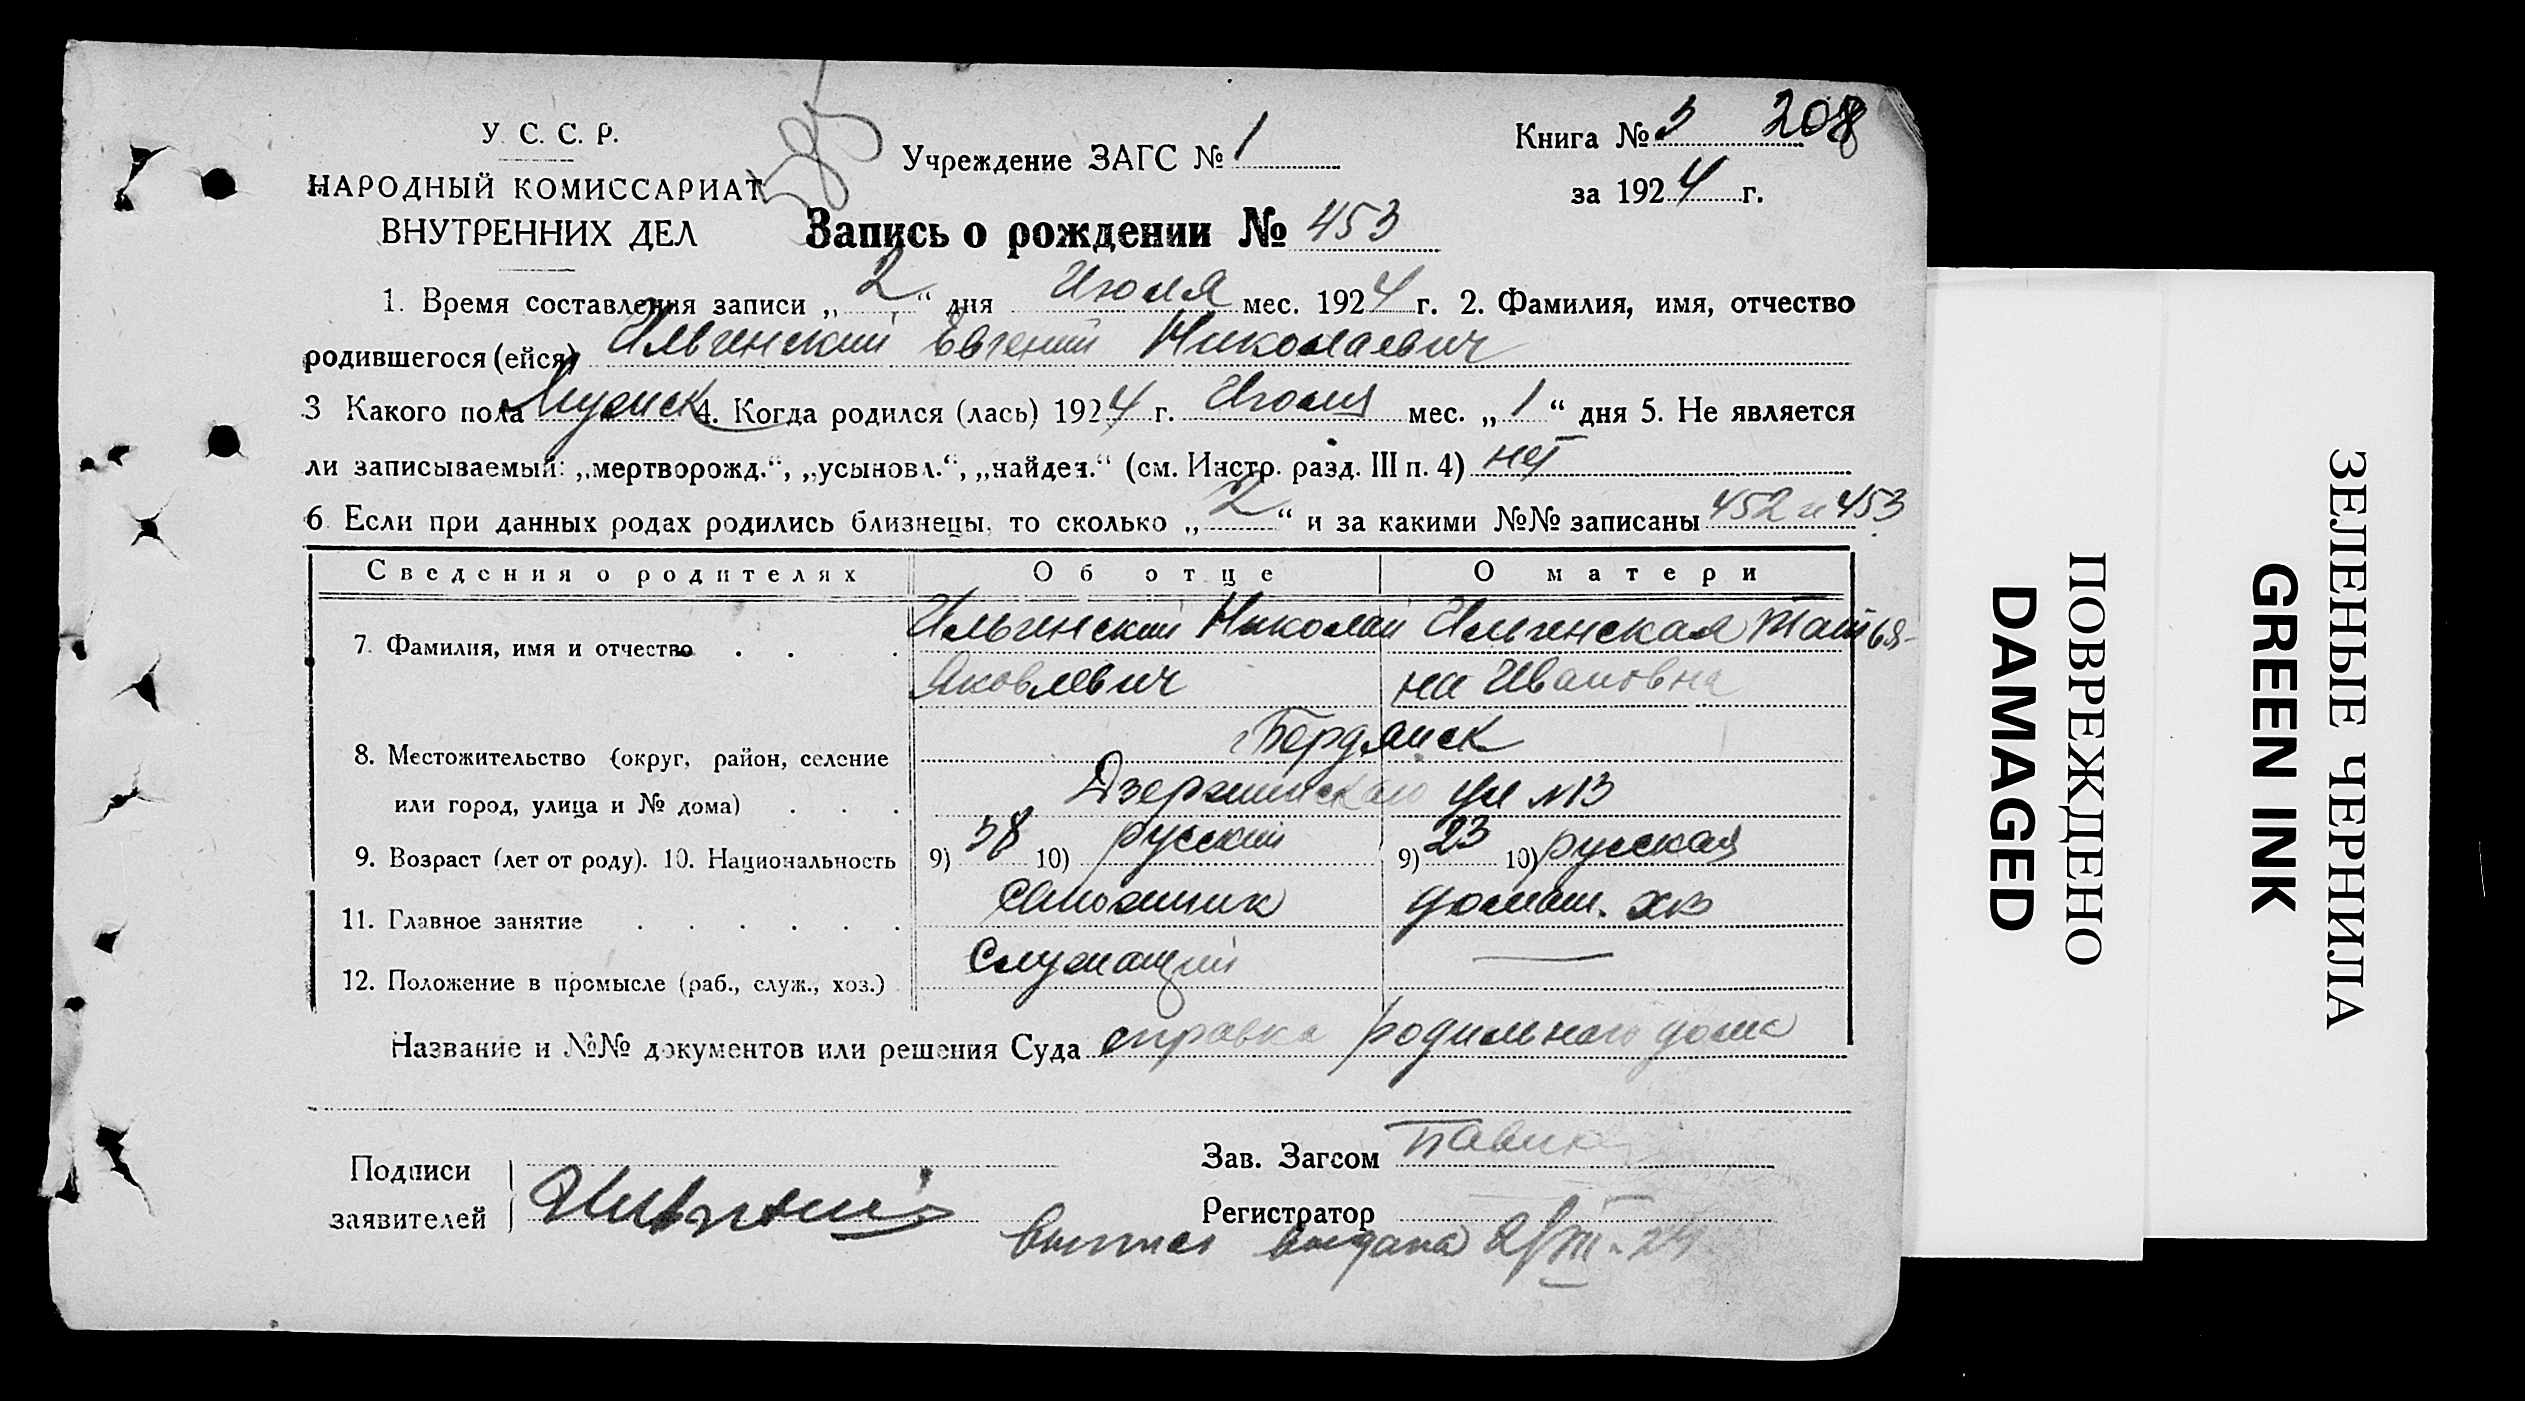 У. С. С. Р.
НАРОДНЫЙ КОМИССАРИАТ
ВНУТРЕННИХ ДЕЛ
Учреждение ЗАГС № 1
Книга № 3 208
за 1924 г.
Запись о рождении № 453
1. Время составления записи „ 2 “ дня Июля мес. 1924 г. 2. Фамилия, имя, отчество
родившегося (ейся) Ильинский Евгений Николаевич
3 Какого пола Мужск 4. Когда родился (лась) 1924 г. Июля мес. „ 1 “ дня 5. Не является
ли записываемый: „мертворожд.“, „усыновл.“, „найден.“ (см. Инстр. разд. III п. 4) нет
6. Если при данных родах родились близнецы, то сколько „ 2 “ и за какими №№ записаны 452 и 453
Сведения о родителях Об отце О матери
7. Фамилия, имя и отчество Ильинский Николай Ильинская Татья-
Яковлевич на Ивановна
г Бердянск
8. Местожительство (округ, район, селение
или город, улица и № дома) Дзержинского ул № 13
9. Возраст (лет от роду). 10. Национальность 9) 38 10) русский 9) 23 10) русская
11. Главное занятие Сапожник домаш. хв
12. Положение в промысле (раб., служ., хоз.) Служащий —
Название и №№ документов или решения Суда справка родильного дома
Подписи
заявителей
Зав. Загсом
Регистратор
выдана
ПОВРЕЖДЕНО
DAMAGED
ЗЕЛЕНЫЕ ЧЕРНИЛА
GREEN INK